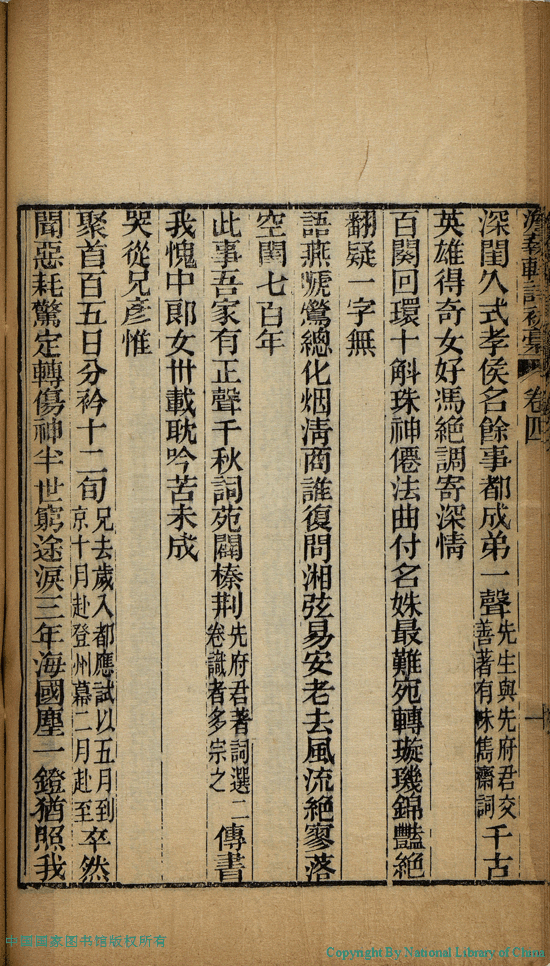 澹菊軒詩初稾 卷四 一
深閨久式孝侯名餘事都成弟一聲先生與先府君交善著有味雋齋詞千古
英雄得奇女好馮絕調寄深情
百闋回環十斛珠神僊法曲付名姝最難宛轉璇璣錦豔絕
翻疑一字無
語燕嗁鶯總化烟淸商誰復問湘弦易安老去風流絕寥落
空閨七百年
此事吾家有正聲千秋詞苑闢榛荆先府君著詞選二卷識者多宗之傳書
我愧中郎女卅載耽吟苦未成
哭從兄彥惟
聚首百五日分衿十二旬兄去歲入都應試以五月到京十月赴登州幕二月赴至卒然
聞惡耗驚定轉傷神半世窮途淚三年海國塵一鐙猶照我
中国国家图书馆版权所有
Copyright By National Library of China